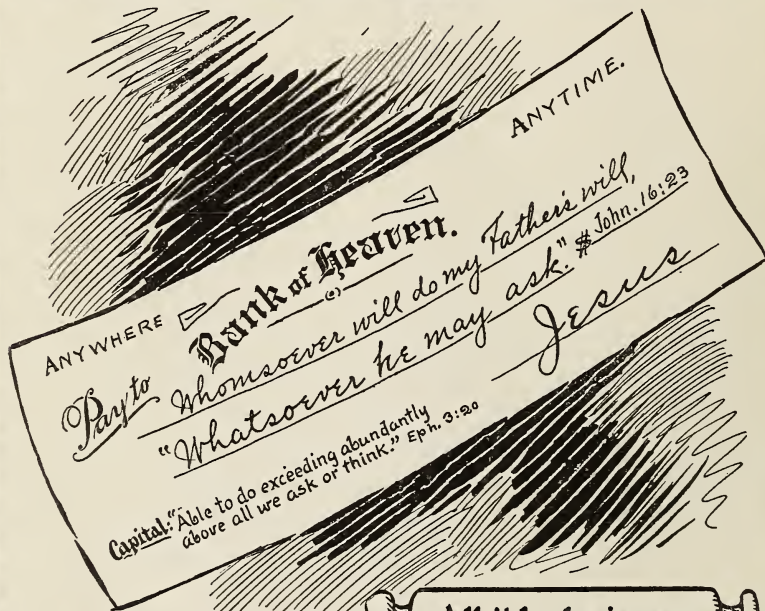 ANYWHERE
ANYTIME.
Bank of Heaven.
Pay to Whomsoever will do my Father's will,
"Whatsoever he may ask." $ John. 16:23
Jesus
Capital: "Able to do exceeding abundantly
above all we ask or think." Eph. 3:20